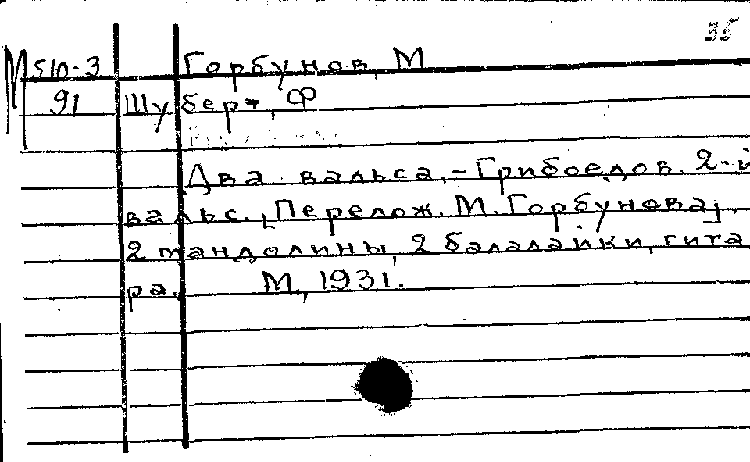 М510-3 Горбунов, М
91 Шуберт, Ф
Два вальса. - Грибоедов. 2-й
вальс. [Перелож. М. Горбунова].
2 мандолины, 2 балалайки, гита
ра. М., 1931.